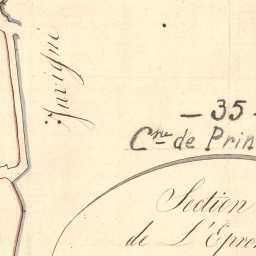 Juvigné
— 35 —
Cne de Prin
Section
de L'Epron